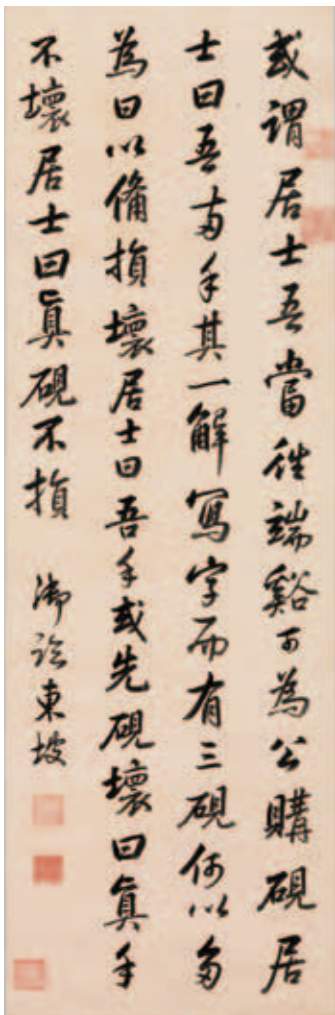 或謂居士吾當往端谿可為公購硯居
士曰吾两手其一解寫字而有三硯何以多
為曰以備損壞居士曰吾手或先硯壞曰真手
不壞居士曰真硯不損 御臨東坡